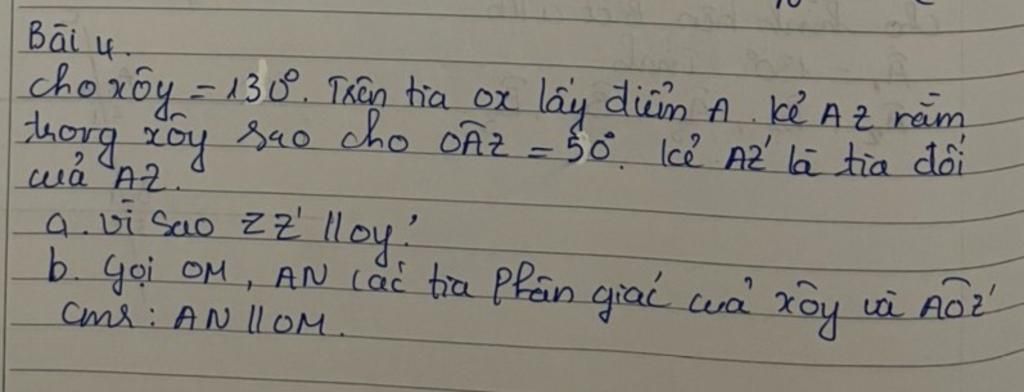 Bài 4.
Cho xôy = 130°. Trên tia Ox lấy điểm A. kẻ AZ nằm
trong xôy sao cho OÂZ = 50°. kẻ AZ' là tia đối
của AZ.
a. vì sao ZZ' // oy?
b. Gọi OM, AN các tia phân giác của xôy và AÔZ'
cmr: AN // OM.